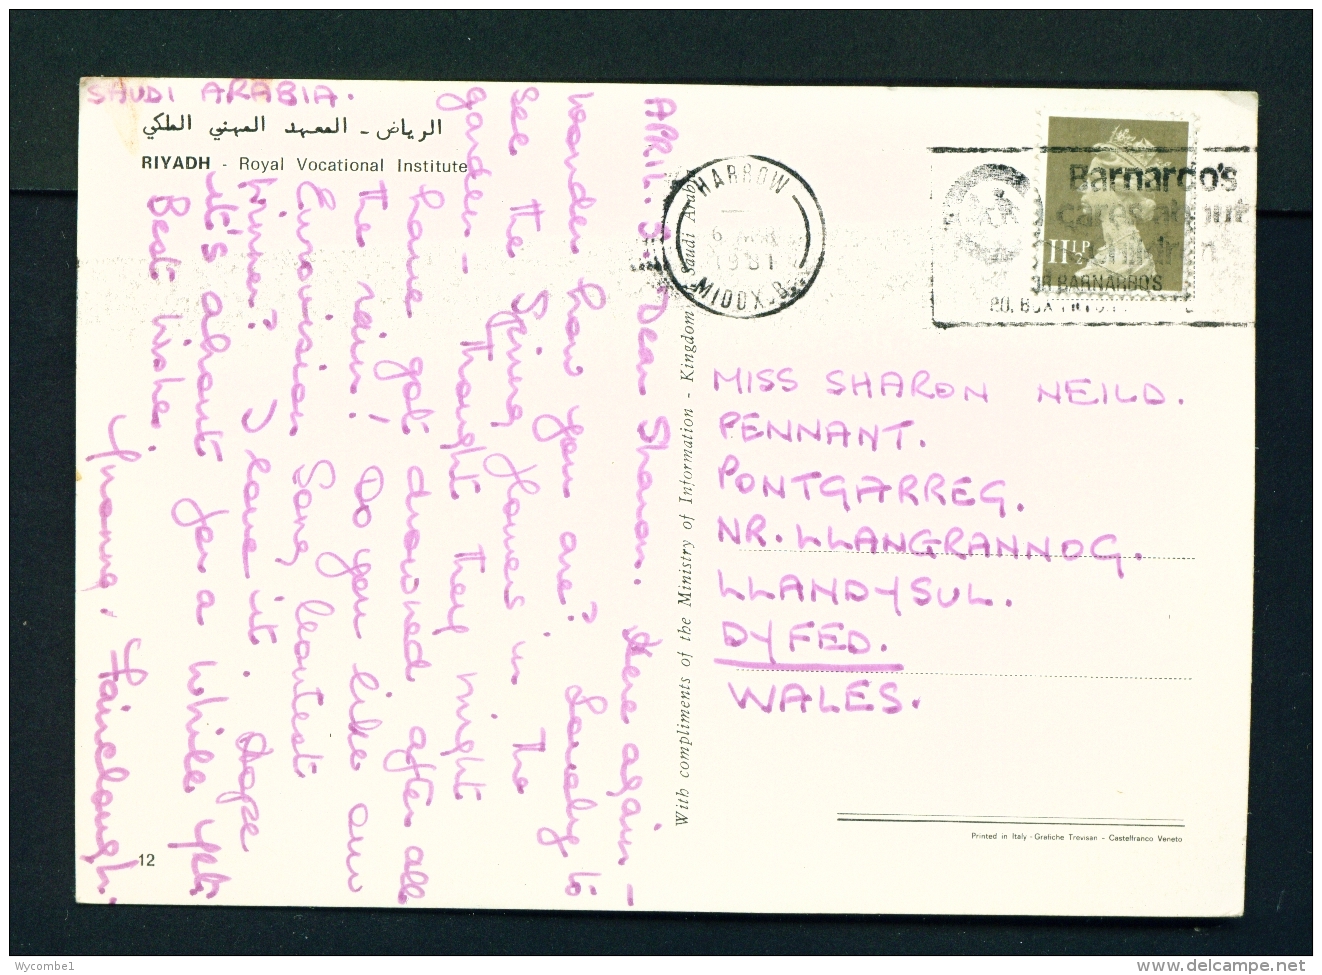 SAUDI ARABIA.
الرياض - المعهد المهني الملكي
RIYADH - Royal Vocational Institute
APRIL. 3. Dear Sharon. Here again -
wonder how you are? Lovely to
see the Spring flowers in the
garden - thought they might
have got drowned after all
the rain! Do you like our
Eurovision Song Contest
winner? I love it. Hope
it's about for a while yet.
Best wishes.
Yvonne. Fairclough.
12
With compliments of the Ministry of Information - Kingdom of Saudi Arabia
HARROW
6
1981
MIDDX. B
Barnardo's
cares about
children
DR BARNARDO'S
P.O. BOX
11½P
MISS SHARON NEILD.
PENNANT.
PONTGARREG.
NR. LLANGRANNOG.
LLANDYSUL.
DYFED.
WALES.
Printed in Italy - Grafiche Trevisan - Castelfranco Veneto
Wycombe1
delcampe.net